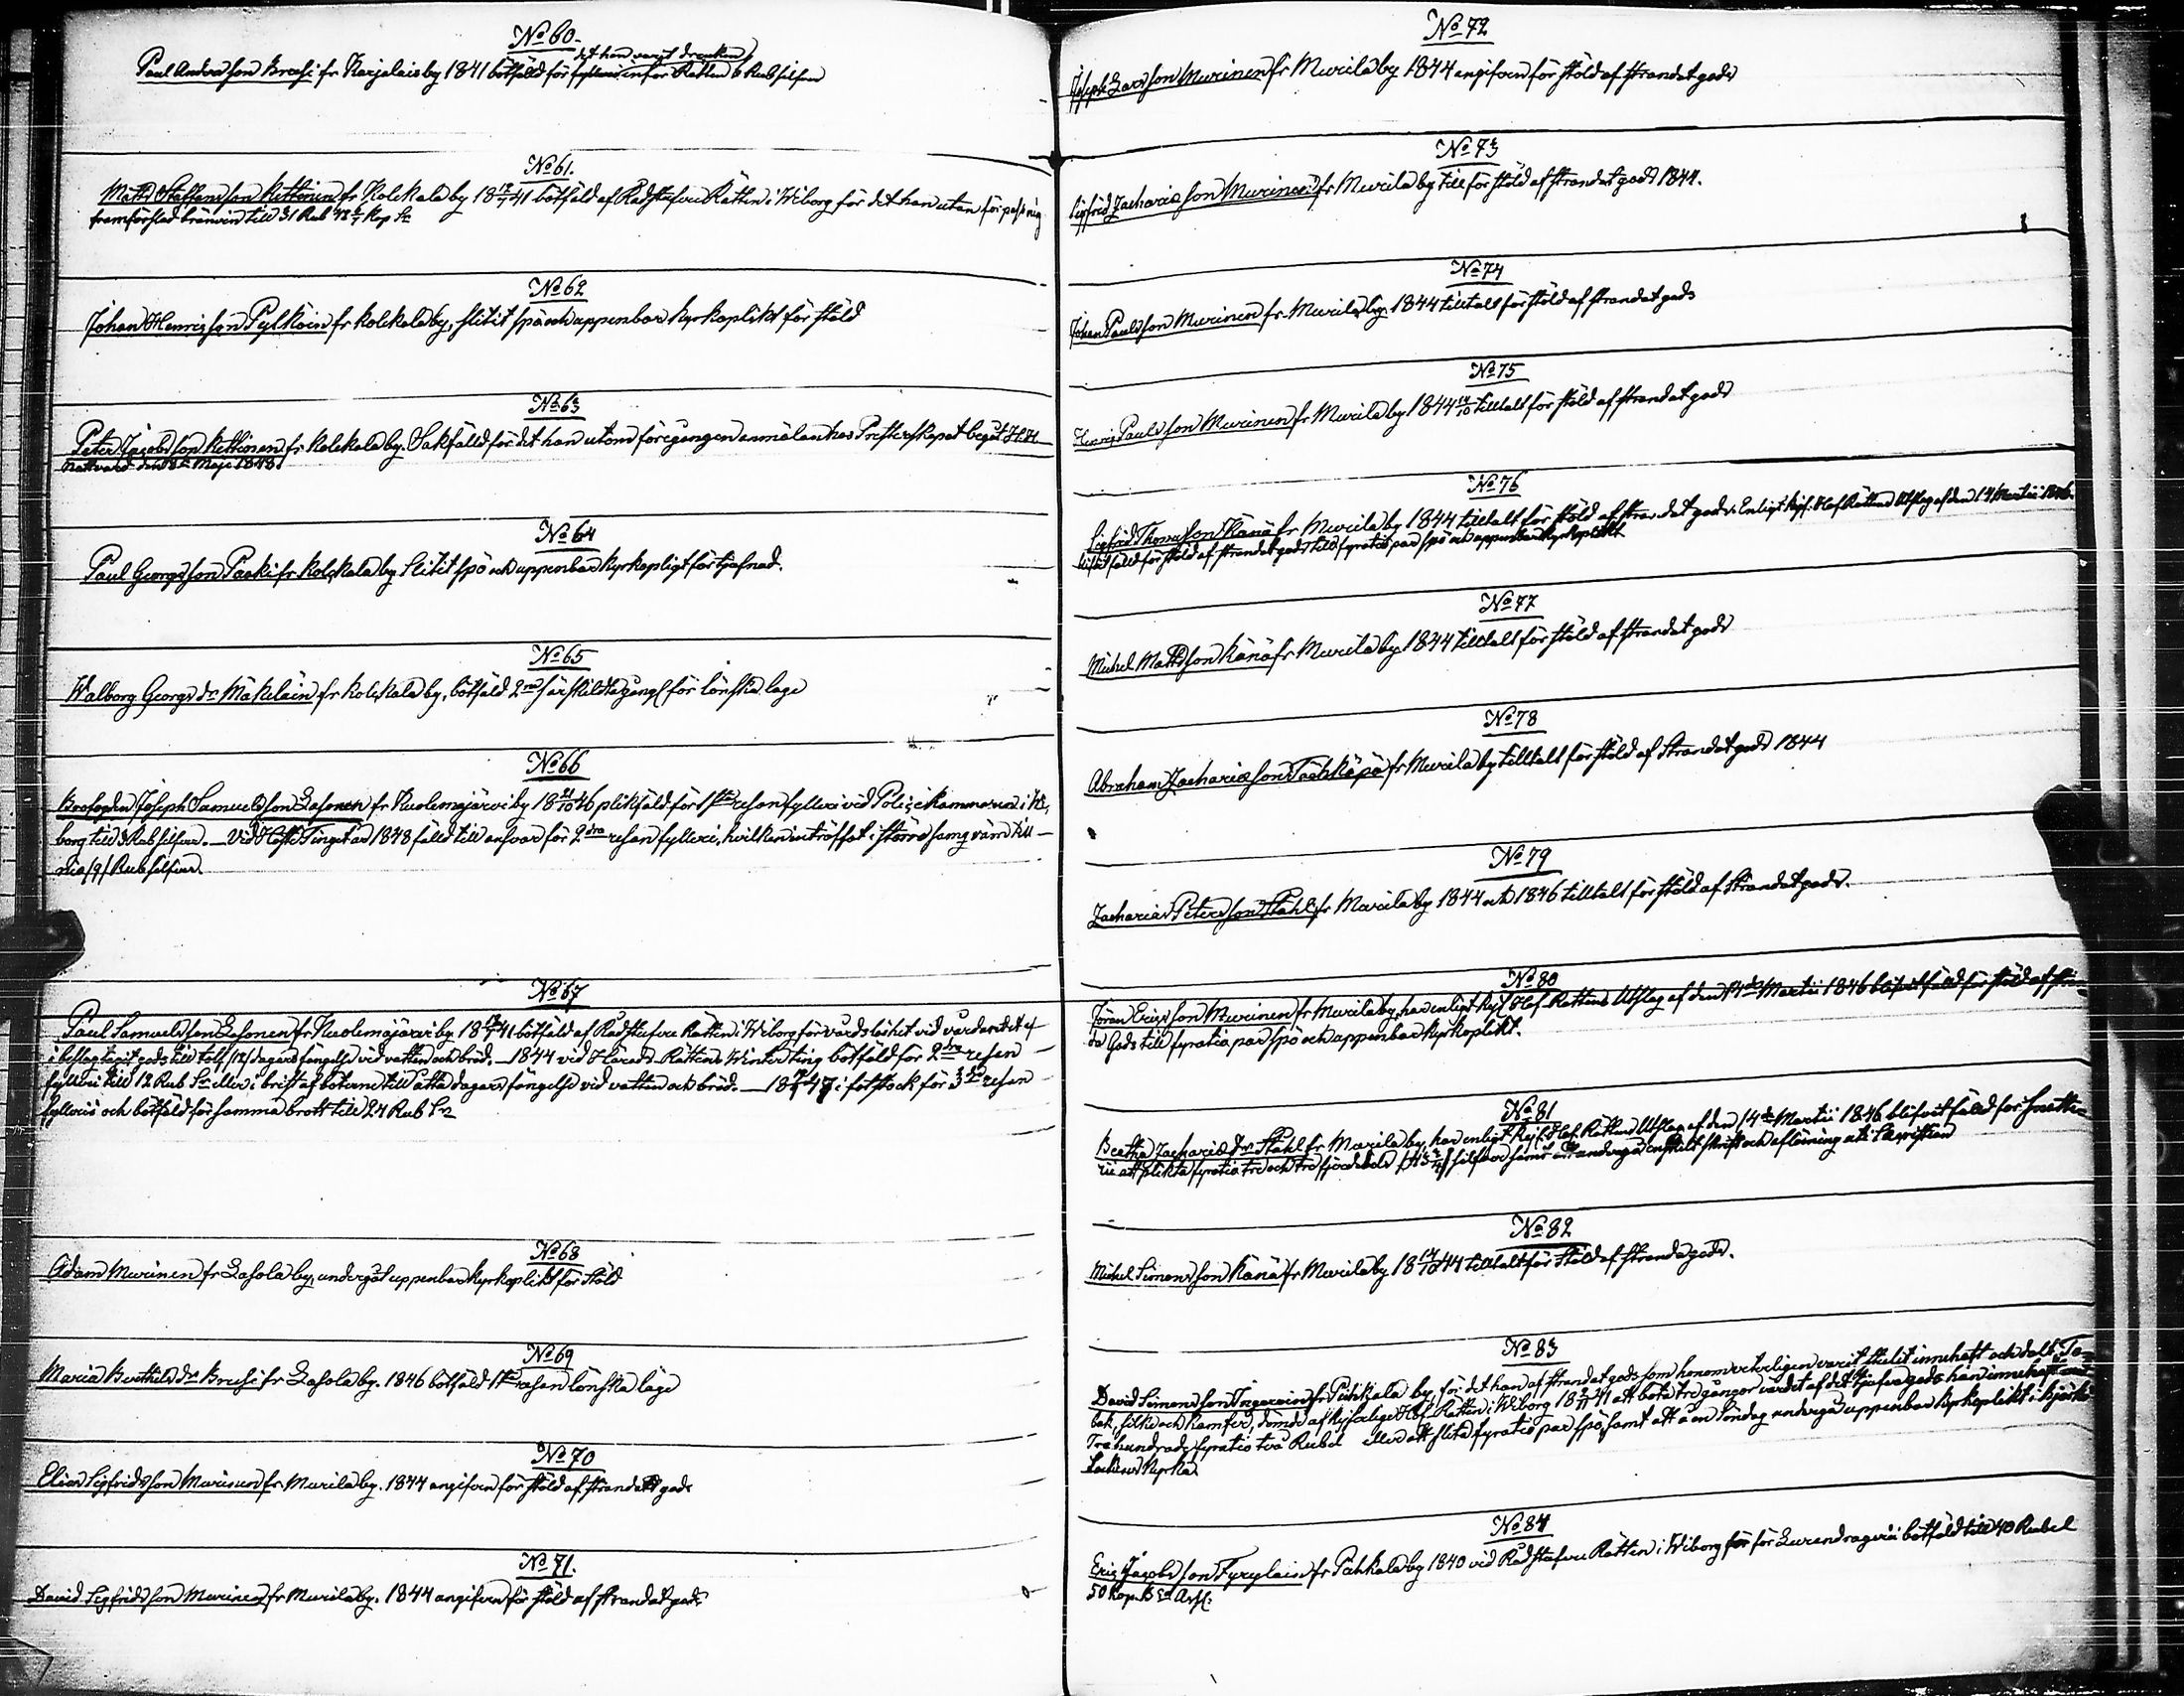 No 60.
det han varit drucken
Paul Andersson Brusi fr Karjalais by 1841 botfäld för fylleri inför Rätten 6 Rub silfver
No 61.
Matts Staffansson Kettunen fr Kolckala by 18 41 botfäld af Rådstufvu Rätten i Wiborg för det han utan förpassning
framförslad bränvin till 31 Rub 42 6/7 Kop Sr
No 62
Johan Henricsson Pylköin fr Kolckala by, slitit spö och uppenbar kyrkoplikt för stöld
No 63
Peter Jacobsson Kettunen fr Kolckala by. Sakfälld för det han utom föregången anmälan hos Presterskapet begåt H. H.
Nattvard den 8de Maji 1848
No 64
Paul Georgsson Paski fr Kolckala by slitit spö och uppenbar kyrkopligt för tjufnad.
No 65
Walborg Georgsdr Mäkeläin fr Kolckala by, botfäld 2ne särskildta gångr för lönska läge
No 66
Krofogden Joseph Samuelsson Lasonen fr Kuolemajärvi by 18 21/10 46 pliktfäld för 1sta resan fylleri vid Poliçi kammaren i Wi-
borg till 3 Rub silfver. — Vid Höste Tinget år 1848 fäld till ansvar för 2dra resan fylleri, hvilken inträffat i större samqväm till
nio /9/ Rub silfver.
No 67
Paul Samuelsson Lasonen fr Kuolemajärvi by 18 41 botfäld af Rådstufvu Rätten i Wiborg för vårdslöshet vid vårdandet af
i beslag tagit gods till tolf /12/ dagars fängelse vid vatten och bröd. — 1844 vid Härads Rättens Winter ting botfäld för 2dra resan
fylleri till 12 Rub Sr eller i brist af böterne till åtta dagars fängelse vid vatten och bröd. — 18 47 i fotstock för 3dje resan
fylleri och botfäld för samma brott till 24 Rub Sr
No 68
Adam Murinen fr Lasola by, undergåt uppenbar kyrkoplikt för stöld
No 69
Maria Berthilsdr Brusi fr Lasola by. 1846 botfäld 1sta resan lönska läge
No 70
Elias Sigfridsson Murinen fr Murila by. 1844 angifven för stöld af strandadt gods
No 71.
David Sigfridsson Murinen fr Murila by. 1844 angifven för stöld af strandat gods
No 72
Joseph Larsson Murinen fr Murila by 1844 angifven för stöld af strandat gods
No 73
Sigfrid Zachariasson Murinen fr Murila by till för stöld af strandat gods 1844.
No 74
Johan Paulsson Murinen fr Murila by 1844 tilltalt för stöld af strandat gods
No 75
Henric Paulsson Murinen fr Murila by 1844 14/10 tilltalt för stöld af strandat gods
No 76
Sigfrid Thomasson Känä fr Murila by 1844 tilltalt för stöld af strandat gods. Enligt Kejs. Hof Rättens Utslag af den 14 Martii 1846
blifvit fälld för stöld af strandat gods till fyratio par spö och uppenbar kyrkoplikt
No 77
Michel Mattsson Känä fr Murila by 1844 tilltalt för stöld af strandat gods
No 78
Abraham Zachariasson fr Murila by tilltalt för stöld af strandat gods 1844
No 79
Zacharias Petersson Stahl fr Murila by 1844 och 1846 tilltalt för stöld af strandat gods.
No 80
Jöran Ericsson Murinen fr Murila by, har enligt Kejs. Hof Rättens Utslag af den 14de Martii 1846 blifvit fäld för stöld af stran-
da Gods till fyratio par spö och uppenbar kyrkoplikt.
No 81
Beatha Zachariædr Stahl fr Murila by, har enligt Kejs. Hof Rättens Utslag af den 14de Martii 1846 blifvit fäld för snatte-
rie att plikta fyratio tre och tre fjerdedels silfver samt undergå enskilt skrift och aflösning uti Sacristian
No 82
Michel Simonsson Känä fr Murila by 18 14/10 44 tilltalt för stöld af stranda gods.
No 83
David Simonsson fr Puhkala by, för det han af strandat gods som honom veterligen varit stulit innehaft och dolt To-
bak, silke och Kamfer, dömd af Kejserliga Hof Rätten i Wiborg 18 41 att böta tre gånger värdet af det tjufva gods han innehaft med
Tre hundrade fyratio två Rubel eller att slita fyratio par spö, samt att å en Söndag undergå uppenbar kyrkoplikt i Björkö
Sockens Kyrka.
No 84
Eric Jacobsson Pyrylain fr Pahkala by 1840 vid Rådstufvu Rätten i Wiborg för för Lurendrageri botfäld till 40 Rubel
50 Kop. B:co Ass.